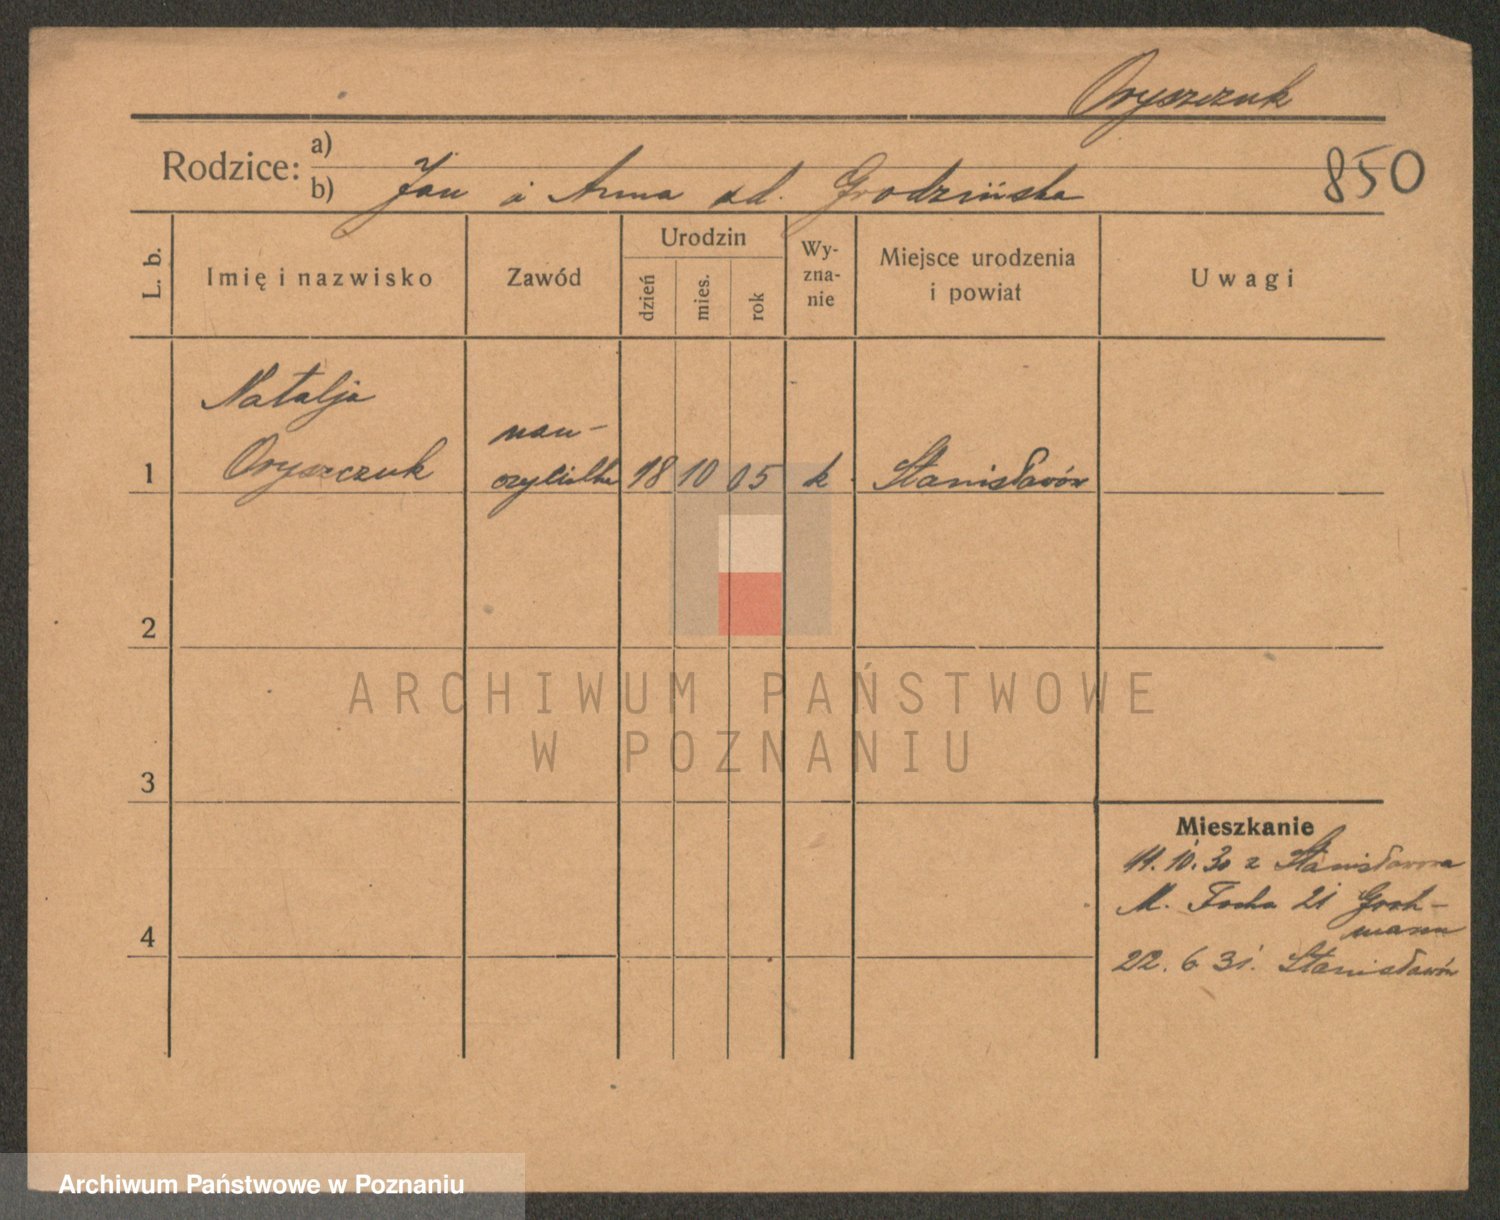 Oryszczuk
Rodzice: a)
b) Jan i Anna zd. Grodzińska
850
L. b.
Imię i nazwisko
Zawód
Urodzin
dzień
mies.
rok
Wy-
zna-
nie
Miejsce urodzenia
i powiat
Uwagi
Natalja
nau-
1 Oryszczuk czycielka 18 10 05 k Stanisławów
2
3
4
Mieszkanie
11.10.30 z Stanisławowa
M. Focha 21
22.6.31. Stanisławów
ARCHIWUM PAŃSTWOWE
W POZNANIU
Archiwum Państwowe w Poznaniu